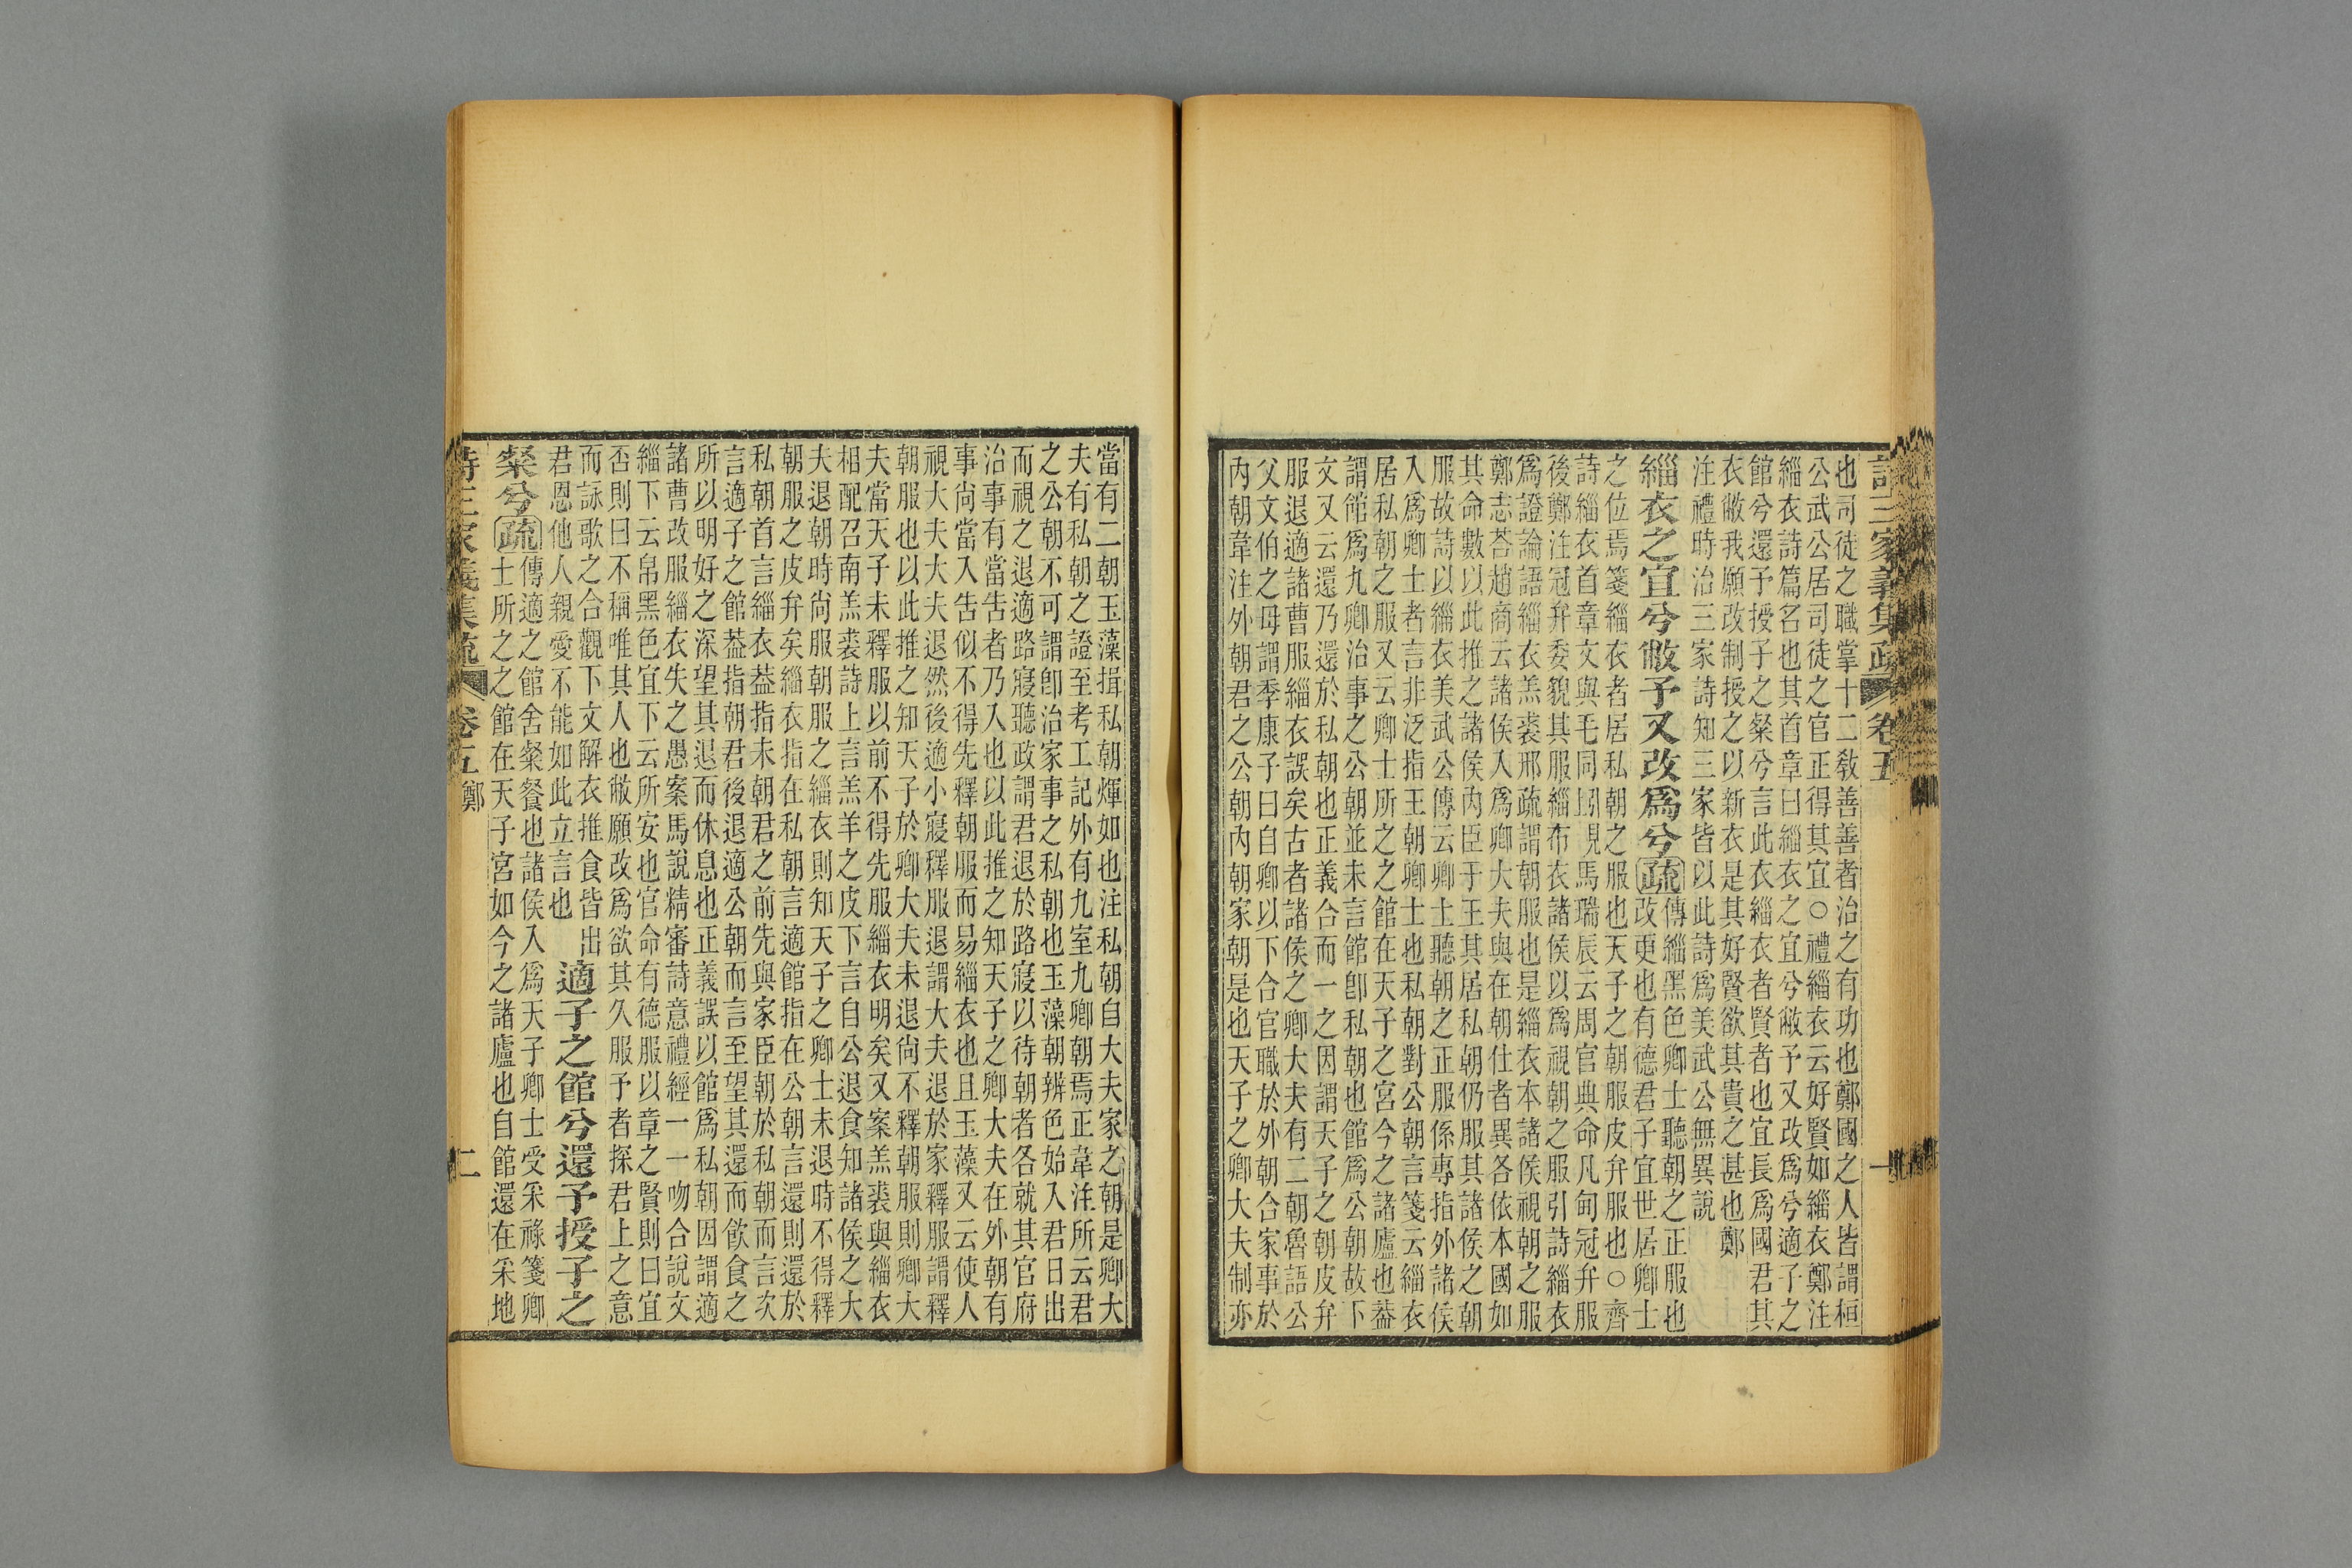 詩三家義集疏 卷五 一
也司徒之職掌十二敎善善者治之有功也鄭國之人皆謂桓
公武公居司徒之官正得其宜○禮緇衣云好賢如緇衣鄭注
緇衣詩篇名也其首章曰緇衣之宜兮敝予又改爲兮適子之
館兮還予授子之粲兮言此衣緇衣者賢者也宜長爲國君其
衣敝我願改制授之以新衣是其好賢欲其貴之甚也鄭
注禮時治三家詩知三家皆以此詩爲美武公無異說
緇衣之宜兮敝予又改爲兮疏傳緇黑色卿士聽朝之正服也
改更也有德君子宜世居卿士
之位焉箋緇衣者居私朝之服也天子之朝服皮弁服也○齊
詩緇衣首章文與毛同馬瑞辰云周官典命凡甸冠弁服
後鄭注冠弁委貌其服緇布衣諸侯以爲視朝之服引詩緇衣
爲證論語緇衣羔裘邢疏謂朝服也是緇衣本諸侯視朝之服
鄭志荅趙商云諸侯人爲卿大夫與在朝仕者異各依本國如
其命數以此推之諸侯內臣于王其居私朝仍服其諸侯之朝
服故詩以緇衣美武公傳云卿士聽朝之正服係專指外諸侯
入爲卿士者言非泛指王朝卿士也私朝對公朝言箋云緇衣
居私朝之服又云卿士所之之館在天子之宮今之諸廬也葢
謂館爲九卿治事之公朝並未言館卽私朝也館爲公朝故下
文又云還乃還於私朝也正義合而一之因謂天子之朝皮弁
服退適諸曹服緇衣誤矣古者諸侯之卿大夫有二朝魯語公
父文伯之母謂季康子曰自卿以下合官職於外朝合家事於
內朝韋注外朝君之公朝內朝家朝是也天子之卿大夫制亦
當有二朝玉藻揖私朝煇如也注私朝自大夫家之朝是卿大
夫有私朝之證至考工記外有九室九卿朝焉正韋注所云君
之公朝不可謂卽治家事之私朝也玉藻朝辨色始入君日出
而視之退適路寢聽政謂君退於路寢以待朝者各就其官府
治事有當告者乃入也以此推之知天子之卿大夫在外朝有
事尚當入告似不得先釋朝服而易緇衣也且玉藻又云使人
視大夫大夫退然後適小寢釋服退謂大夫退於家釋服謂釋
朝服也以此推之知天子於卿大夫未退尚不釋朝服則卿大
夫當天子未釋服以前不得先服緇衣明矣又案羔裘與緇衣
相配召南羔裘詩上言羔羊之皮下言自公退食知諸侯之大
夫退朝時尚服朝服之緇衣則知天子之卿士未退時不得釋
朝服之皮弁矣緇衣指在私朝言適館指在公朝言還則還於
私朝首言緇衣葢指未朝君之前先與家臣朝於私朝而言次
言適子之館葢指朝君後退適公朝而言至望其還而飲食之
所以明好之深望其退而休息也正義誤以館爲私朝因謂適
諸曹改服緇衣失之愚案馬說精審詩意禮經一一吻合說文
緇下云帛黑色宜下云所安也官命有德服以章之賢則曰宜
否則曰不稱唯其人也敝願改爲欲其久服予者探君上之意
而詠歌之合觀下文解衣推食皆出
君恩他人親愛不能如此立言也 適子之館兮還予授子之
粲兮疏傳適之館舍粲餐也諸侯入爲天子卿士受采祿箋卿
士所之之館在天子宮如今之諸廬也自館還在采地
詩三家義集疏 卷五 鄭 二